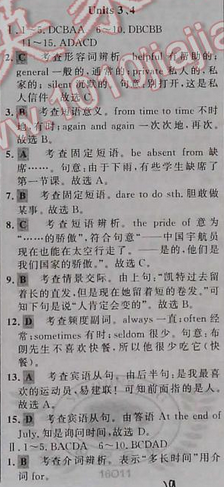 Units 3、4
Ⅰ.1~5.DCBAA 6~10.DBCBB
11~15.ADACD
2. C 考查形容词辨析。helpful 有帮助的;
general 一般的,通常的;private 私人的,私
家的;silent 沉默的。句意:别打开,这是私
人信件。故选C。
3. B 考查短语意义。from time to time 不时
地,有时;again and again 一次次地,再次。
故选B。
5. A 考查固定短语。be absent from 缺
席……。句意:由于下雨,有些学生缺席了
第一节课。故选A。
7. B 考查固定短语。dare to do sth. 胆敢做
某事。故选B。
8. C 考查短语辨析。the pride of 意为
“……的骄傲”,符合句意“——中国宇航员
现在也能在太空行走了。——是的,他们是
我们国家的骄傲。”。故选C。
9. B 考查情景交际。由上句:“凯特过去留
着长的直发,但是现在她留着短的卷发。”可
知下句是说“人肯定会变的”。故选B。
12. D 考查频度副词。always 一直;often 经
常;sometimes 有时;seldom 很少。句意:布
朗先生不喜欢快餐,所以他很少吃它(快
餐)。
13. A 考查宾语从句。由后半句:是我最喜
欢的运动员,易建联!可知前面指的是人。
故选A。
15. D 考查宾语从句。由答语 At the end of
July. 知是询问时间,故选D。
Ⅱ.1~5.BACDA 6~10.BCDAD
1. B 考查介词辨析。表示“多长时间”用介
词 for。
16011